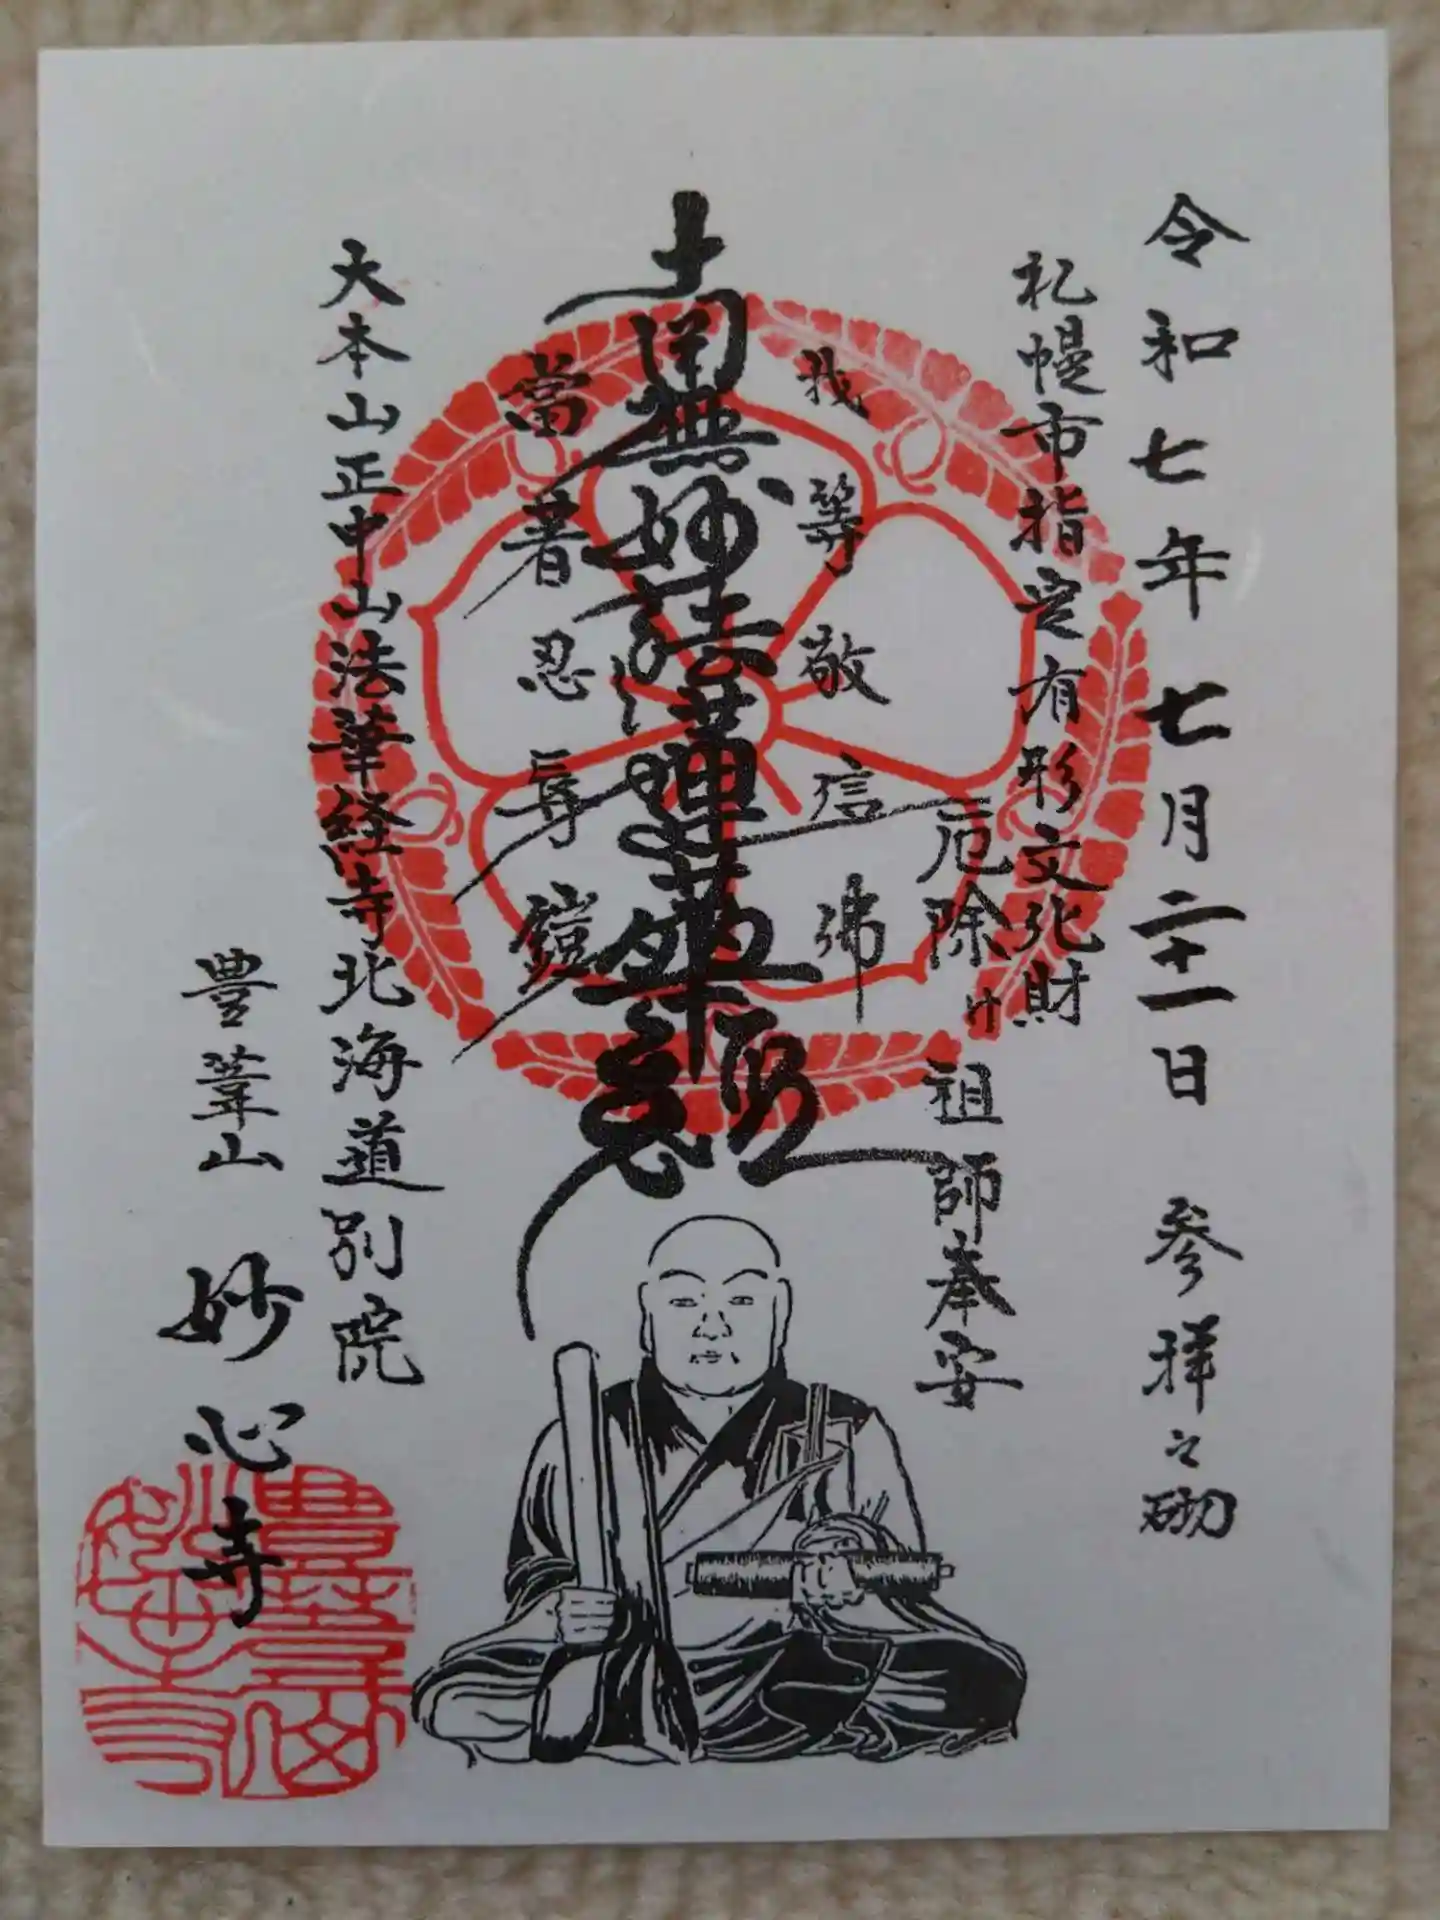 令和七年七月二十一日 参拝之砌
札幌市指定有形文化財
厄除け祖師奉安
我等敬信佛
南無妙法蓮華経
當著忍辱鎧
大本山正中山法華経寺北海道別院
豊葦山 妙心寺